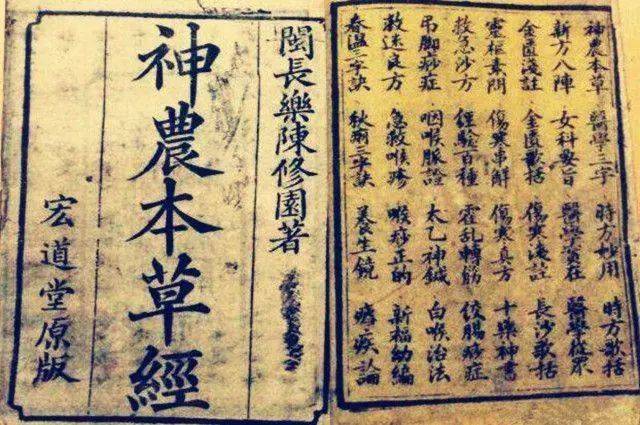 閩長樂陳修園著
神農本草經
宏道堂原版
神農本草 醫學三字 時方妙用 時方歌括
新方八陣 女科要旨 醫學實在 醫學從眾
金匱淺註 金匱歌括 傷寒淺註 長沙歌括
靈樞素問 傷寒串解 傷寒真方 十藥神書
救急沙方 經驗百種 霍乱轉筋 絞腸痧症
吊脚痧症 咽喉脈證 太乙神鍼 白喉治法
救迷良方 急救喉疹 喉痧正的 新福幼編
春温三字訣 三字訣 養生鏡 瘧疾論